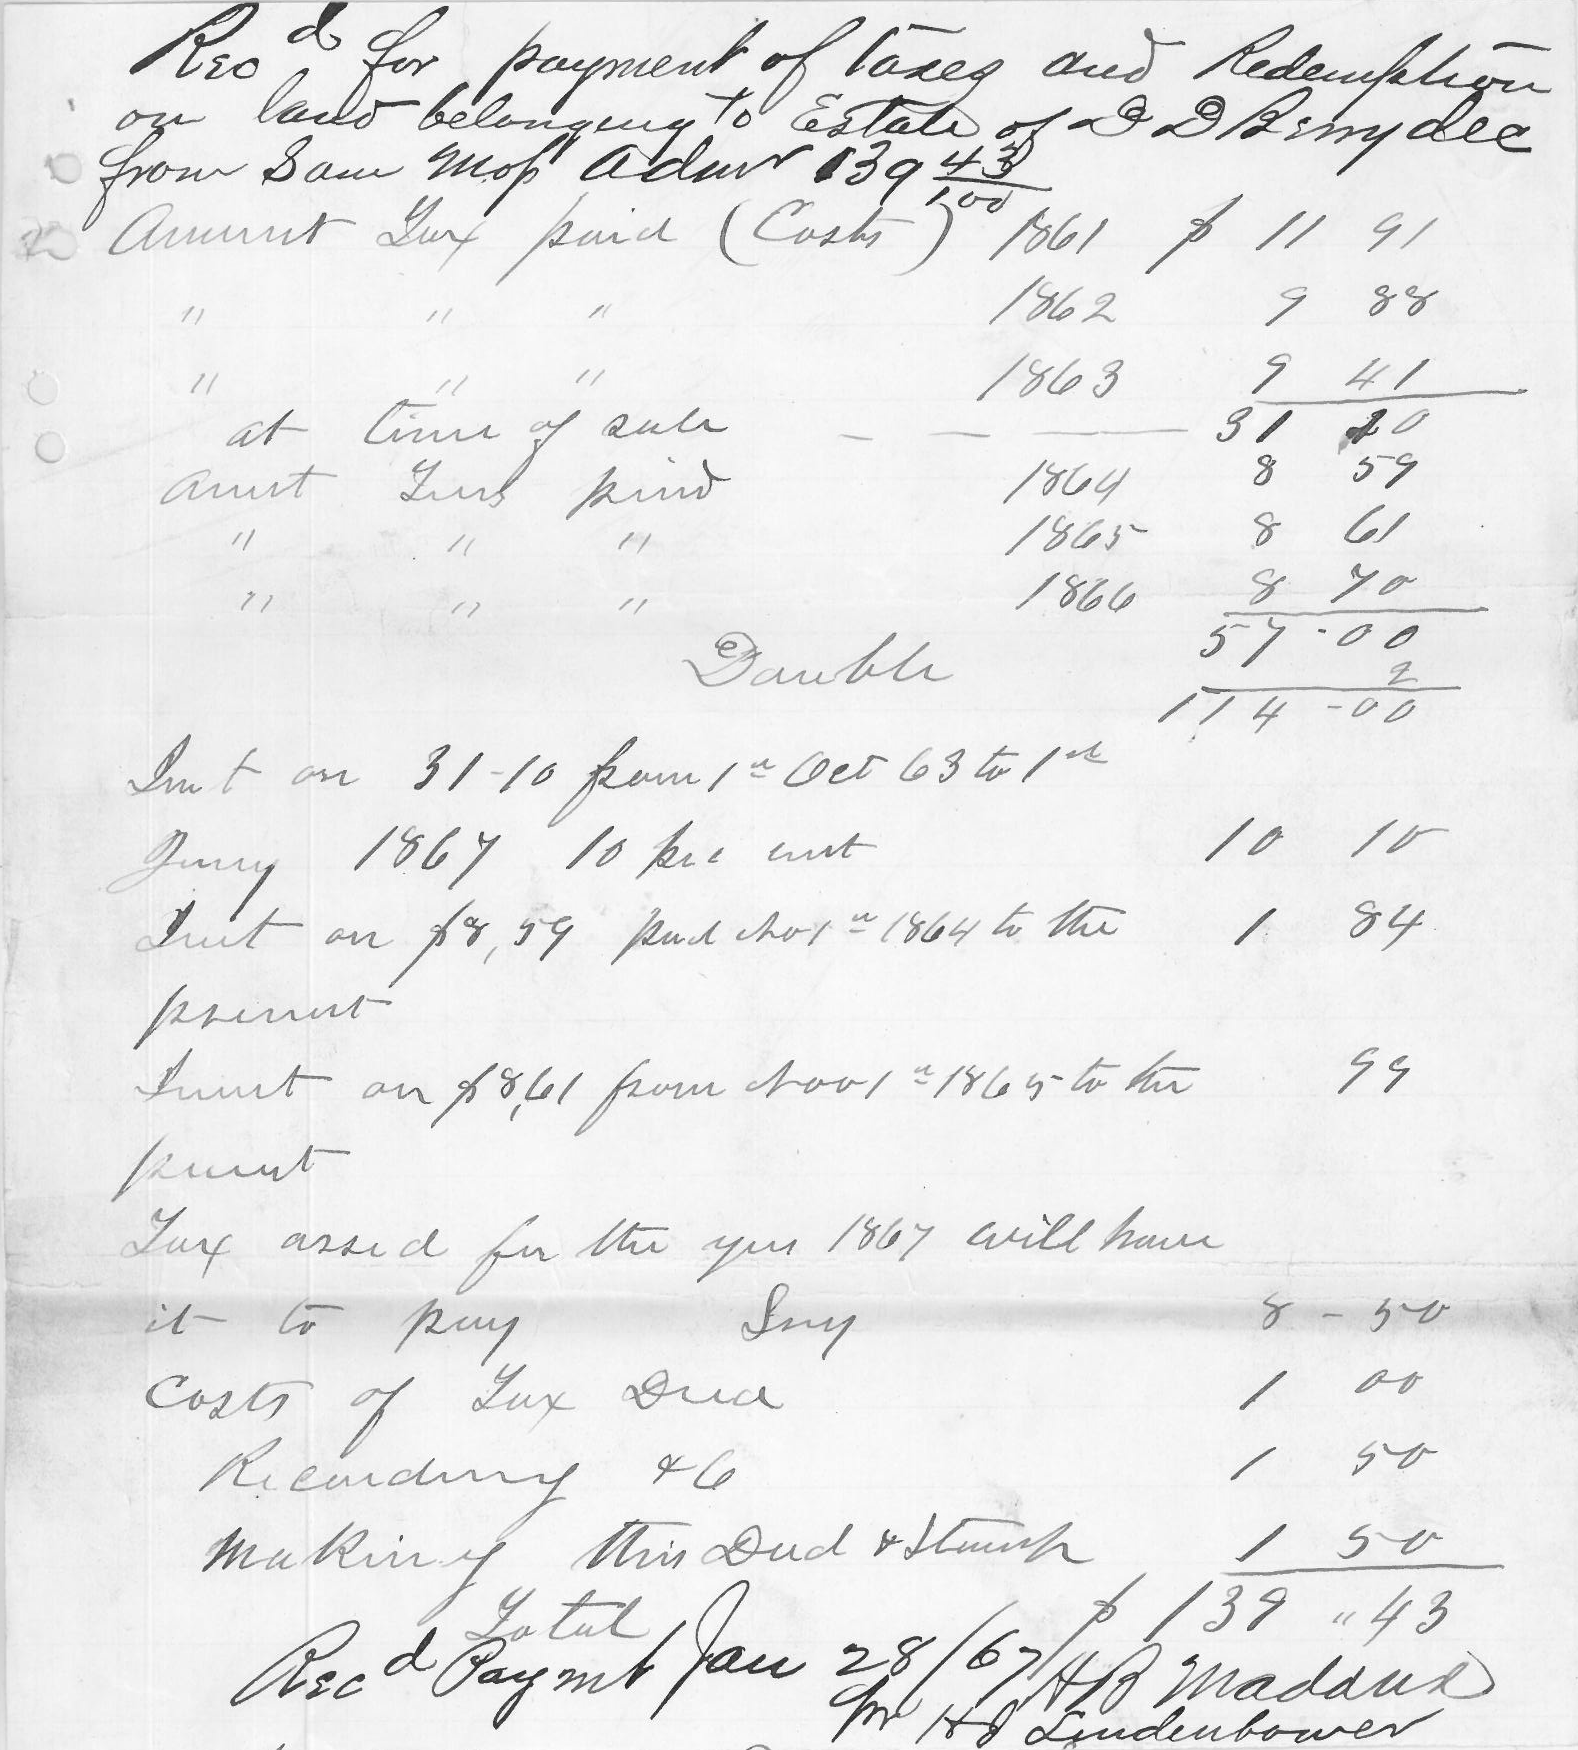 Recd for payment of taxes and Redemption
on land belonging to Estate of D D Berry dec
from Sam Moss Admr 139 43/100
Amount Tax paid (Costs) 1861 $ 11 91
" " " 1862 9 88
" " " 1863 9 41
at time of sale - - — 31 20
Amt Taxs paid 1864 8 59
" " " 1865 8 61
" " " 1866 8 70
57-00
2
Double 114-00
Int on 31-10 from 1st Oct 63 to 1st
Jany 1867 10 per cent 10 10
Inst on $8,59 paid Nov 1st 1864 to the 1 84
present
Inst on $8,61 from Nov 1st 1865 to the 99
present
Tax assed for the year 1867 will have
it to pay Say 8-50
Costs of Tax Deed 1 00
Recording &C 1 50
Making this Deed & Stamp 1 50
Total $ 139 " 43
Recd Paymt Jan 28/67 H B Maddux
pr H J Lindenbower